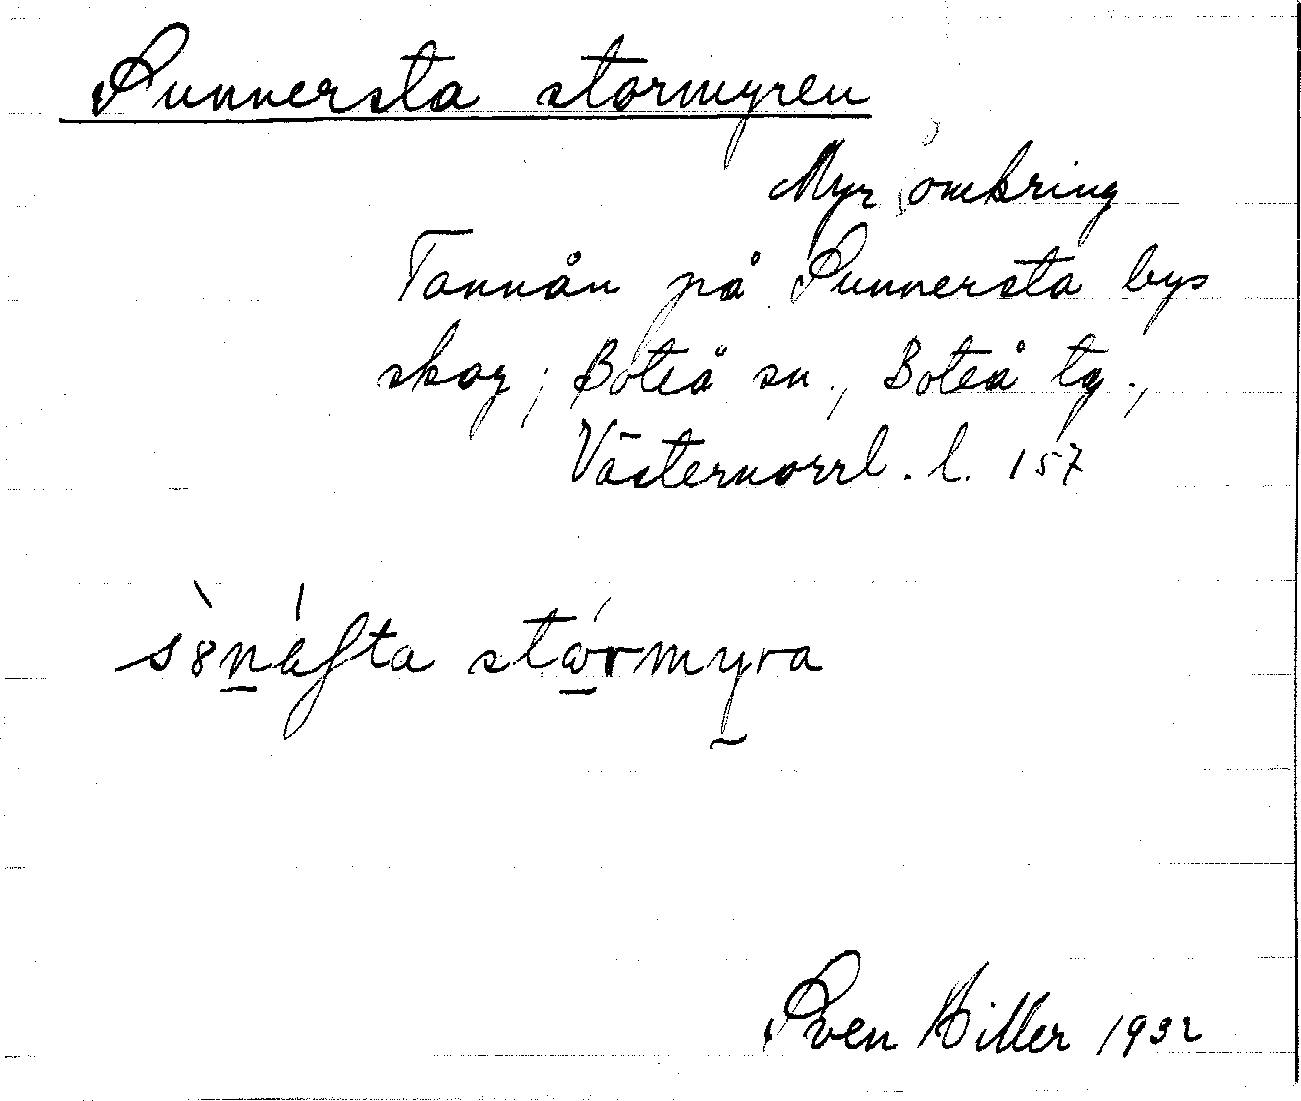 Sunnersta stormyren
Myr omkring
Tannån på Sunnersta bys
skog; Boteå sn., Boteå tg.,
Västernorrl. l. 157
stormyra
Sven Hiller 1932